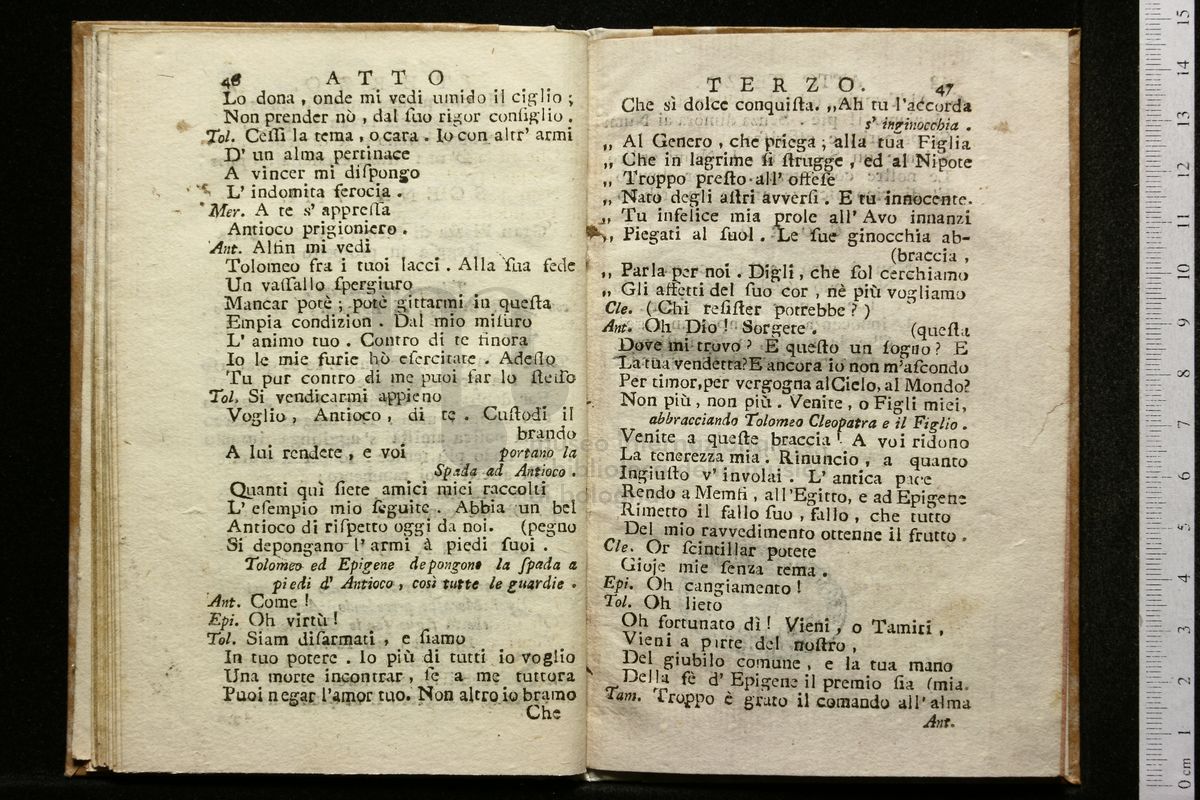 46 ATTO
Lo dona , onde mi vedi umido il ciglio ;
Non prender nò , dal ſuo rigor conſiglio .
Tol. Ceſſi la tema , o cara . Io con altr' armi
D' un alma pertinace
A vincer mi diſpongo
L' indomita ferocia .
Mer. A te s' appreſſa
Antioco prigioniero .
Ant. Alfin mi vedi
Tolomeo fra i tuoi lacci . Alla ſua fede
Un vaſſallo ſpergiuro
Mancar potè ; potè gittarmi in queſta
Empia condizion . Dal mio miſuro
L' animo tuo . Contro di te finora
Io le mie furie hò eſercitate . Adeſſo
Tu pur contro di me puoi far lo ſteſſo
Tol. Si vendicarmi appieno
Voglio , Antioco , di te . Cuſtodi il
brando
A lui rendete , e voi portano la
Spada ad Antioco .
Quanti quì ſiete amici miei raccolti
L' eſempio mio ſeguite . Abbia un bel
Antioco di riſpetto oggi da noi . (pegno
Si depongano l' armi à piedi ſuoi .
Tolomeo ed Epigene depongono la ſpada a
piedi d' Antioco , così tutte le guardie .
Ant. Come !
Epi. Oh virtù !
Tol. Siam diſarmati , e ſiamo
In tuo potere . Io più di tutti io voglio
Una morte incontrar , ſe a me tuttora
Puoi negar l'amor tuo. Non altro io bramo
Che
TERZO. 47
Che sì dolce conquiſta. ,,Ah tu l'accorda
s' inginocchia .
,, Al Genero , che priega ; alla tua Figlia
,, Che in lagrime ſi ſtrugge , ed al Nipote
,, Troppo preſto all' offeſe
,, Nato degli aſtri avverſi . E tu innocente.
,, Tu infelice mia prole all' Avo innanzi
,, Piegati al ſuol . Le ſue ginocchia ab-
(braccia ,
,, Parla per noi . Digli , che ſol cerchiamo
,, Gli affetti del ſuo cor , nè più vogliamo
Cle. ( Chi reſiſter potrebbe ? )
Ant. Oh Dio ! Sorgete . (queſta
Dove mi trovo ? E queſto un ſogno ? E
La tua vendetta? E ancora io non m'aſcondo
Per timor, per vergogna al Cielo, al Mondo?
Non più , non più . Venite , o Figli miei,
abbracciando Tolomeo Cleopatra e il Figlio .
Venite a queſte braccia ! A voi ridono
La tenerezza mia . Rinuncio , a quanto
Ingiuſto v' involai . L' antica pace
Rendo a Memfi , all'Egitto, e ad Epigene
Rimetto il fallo ſuo , fallo , che tutto
Del mio ravvedimento ottenne il frutto .
Cle. Or ſcintillar potete
Gioje mie ſenza tema .
Epi. Oh cangiamento !
Tol. Oh lieto
Oh fortunato dì ! Vieni , o Tamiri ,
Vieni a parte del noſtro ,
Del giubilo comune , e la tua mano
Della fè d' Epigene il premio ſia (mia.
Tam. Troppo è grato il comando all' alma
Ant.
15
14
13
12
11
10
9
8
7
6
5
4
3
2
1
0 cm